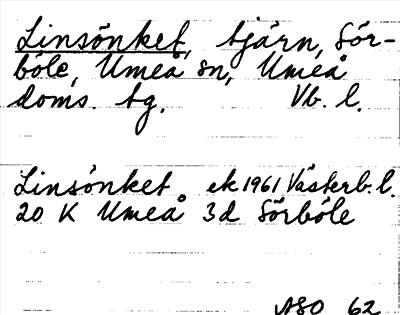 Linsönket, tjärn, Sör-
böle, Umeå sn, Umeå
doms. tg. Vb. l.
Linsönket ek 1961 Västerb. l.
20 K Umeå 3d Sörböle
ASO 62